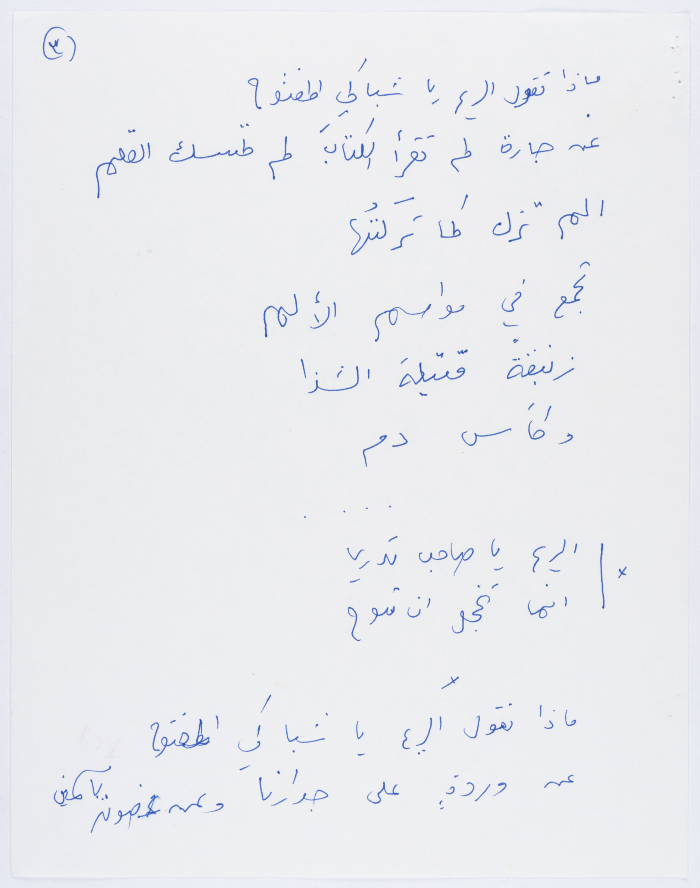 (٣)
ماذا تقول الريح يا شباكي المفتوح
عن جارة لم تقرأ الكتابَ لم تمسك القلم
ألم تزل كما تَركتُها
تجمع في مواسم الألم
زنبقةً قتيلة الشذا
وكأس دم
. . . .
الريح يا صاحب تدري
انما تخجل ان تبوح
ماذا تقول الريح يا شباكي المفتوح
عن وردةٍ على جدارنا وعن غصون ياسمين